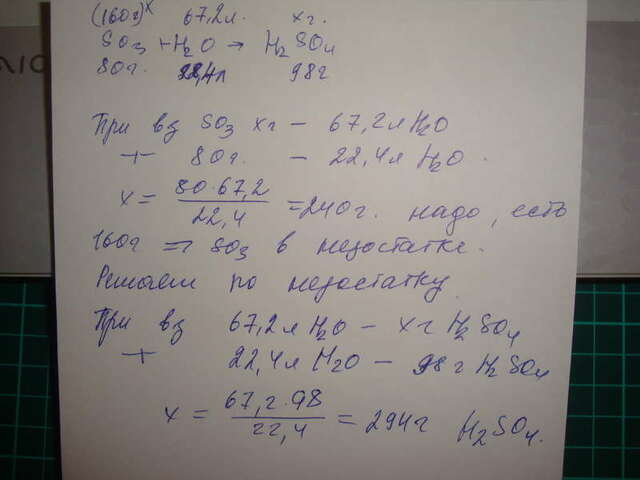 (160г)x 67,2л. xг.
SO3 + H2O → H2SO4
80г. 22,4л 98г
При вз SO3 xг – 67,2л H2O
–//– 80г. – 22,4л H2O.
x = 80·67,2 / 22,4 = 240г. надо, есть
160г => SO3 в недостатке.
Решаем по недостатку
При вз 67,2л H2O – xг H2SO4
–//– 22,4л H2O – 98г H2SO4
x = 67,2·98 / 22,4 = 294г H2SO4.